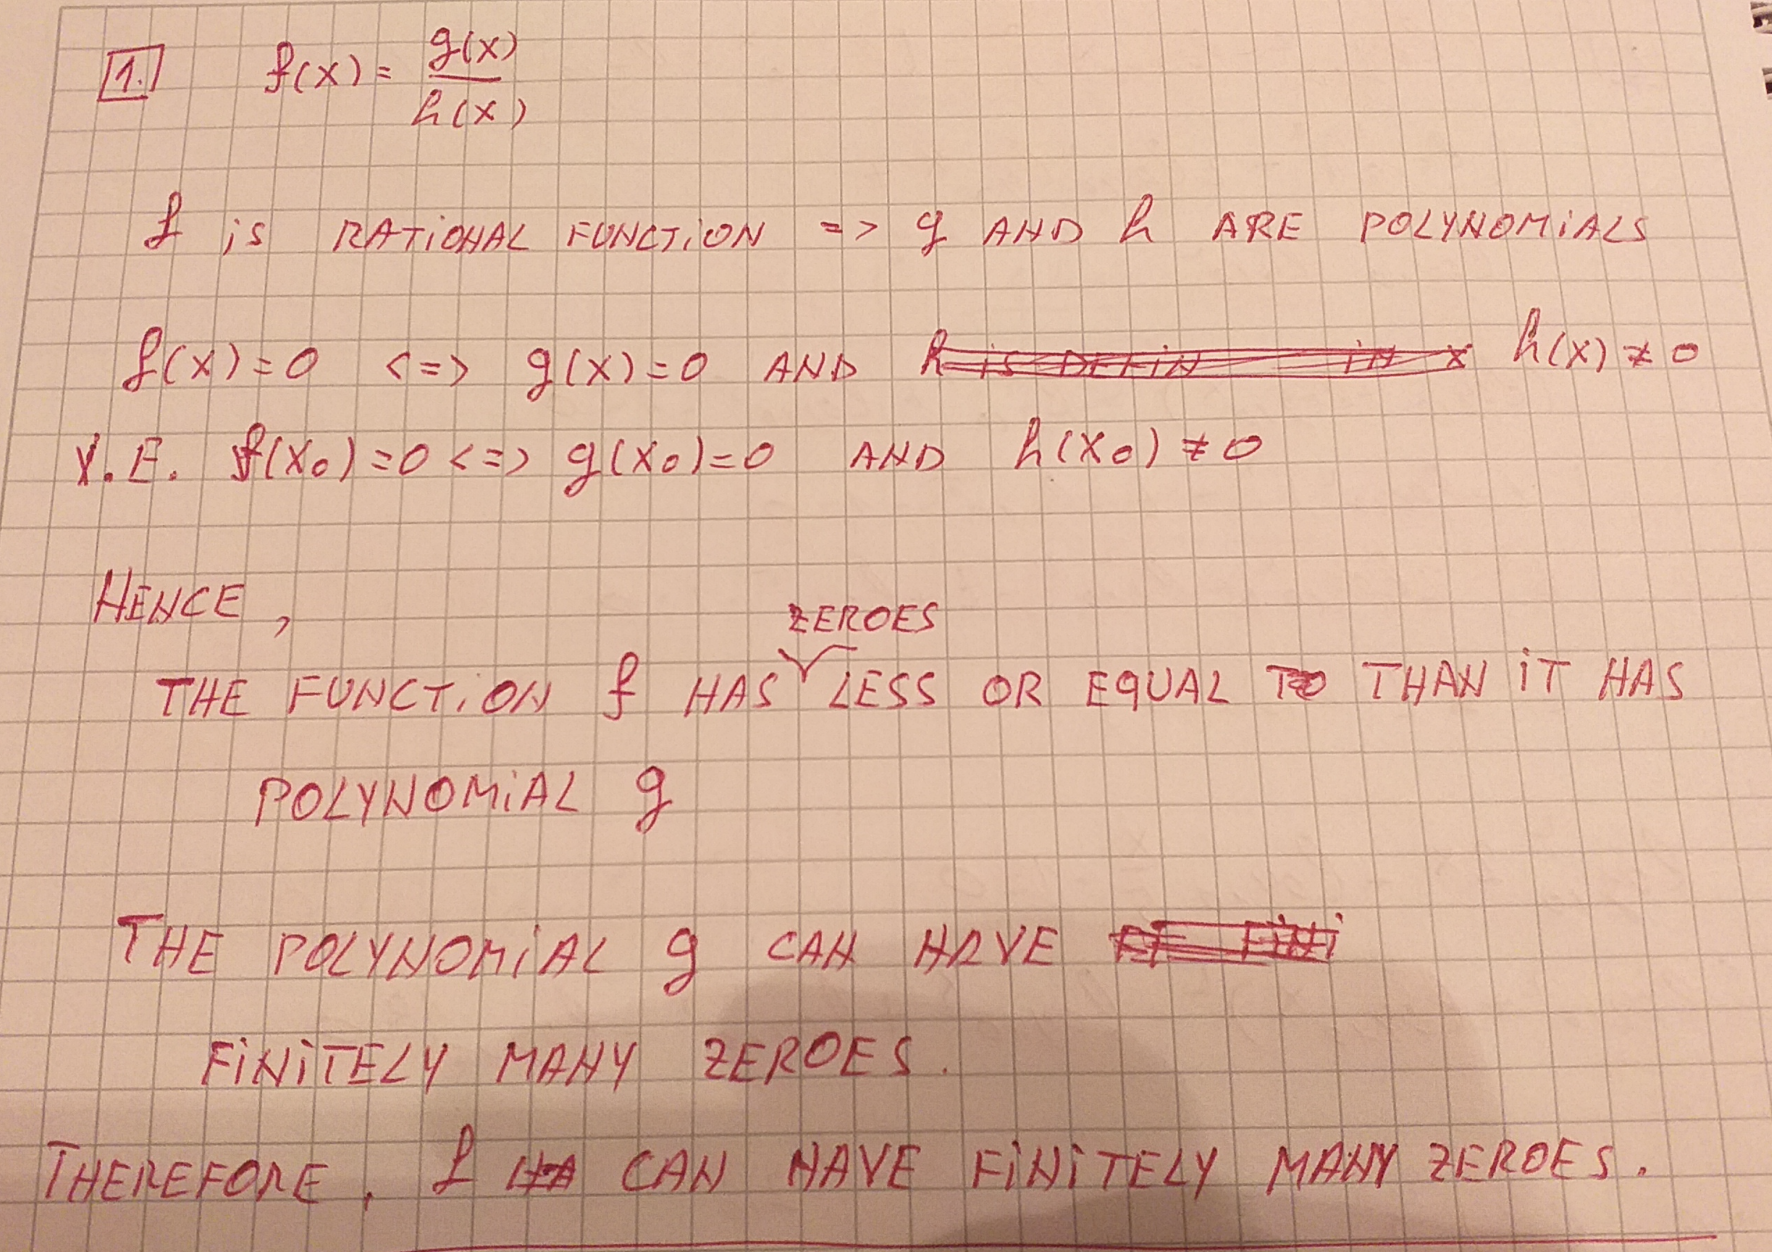 1. f(x) = g(x)/h(x)
f is RATIONAL FUNCTION => g AND h ARE POLYNOMIALS
f(x)=0 <=> g(x)=0 AND h(x) ≠ 0
f(x₀)=0 <=> g(x₀)=0 AND h(x₀) ≠ 0
HENCE,
ZEROES
THE FUNCTION f HAS LESS OR EQUAL TO THAN iT HAS
POLYNOMiAL g
THE POLYNOMiAL g CAN HAVE
FiNiTELY MANY ZEROES.
THEREFORE, f CAN HAVE FiNiTELY MANY ZEROES.